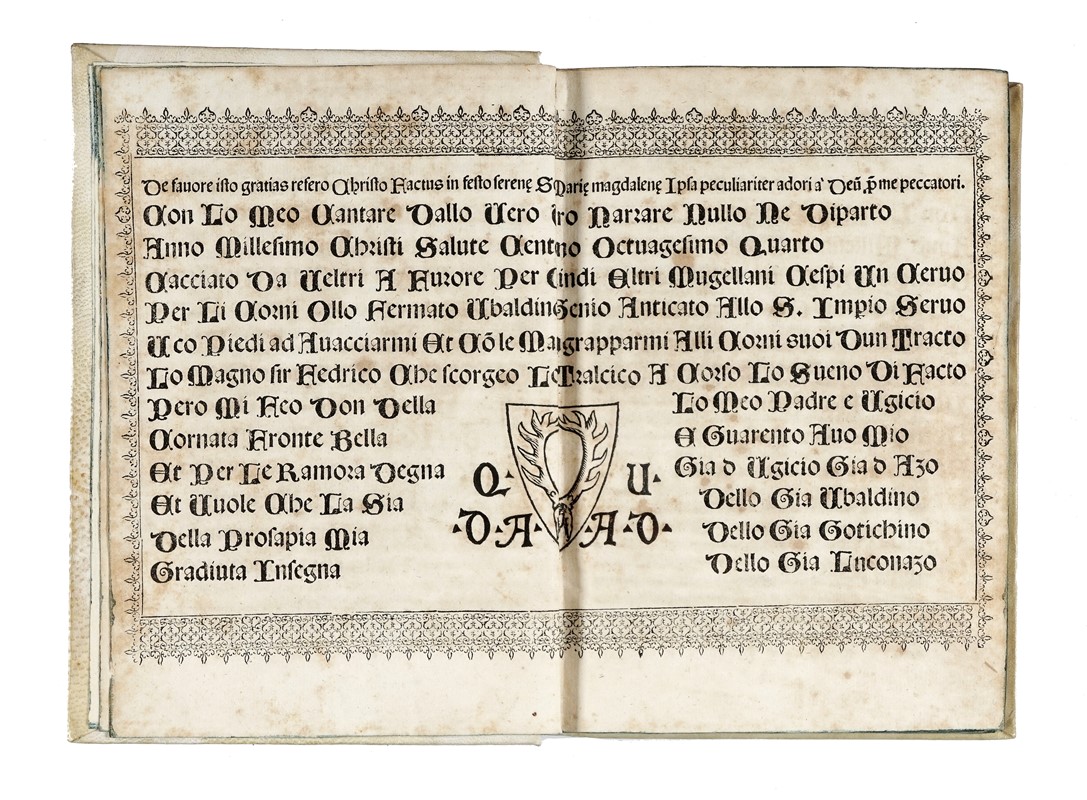 De favore isto gratias refero Christo Factus in festo serenę S Marię magdalenę Ipsa peculiariter adori a' Deũ p̃ me peccatori.
Con Lo Meo Cantare Dallo Vero ro Narrare Nullo Ne Diparto
Anno Millesimo Christi Salute Centno Octuagesimo Quarto
Cacciato Da Veltri A Furore Per indi Eltri Mugellani Cespi Un Cervo
Per Li Corni Ollo Fermato Ubaldin Genio Anticato Allo S. Impio Servo
U co Piedi ad Avacciarmi Et Cõ le Magrapparmi Alli Corni suoi Dun Tracto
Lo Magno sir Fedrico Che scorgeo Le Tralcico A Corso Lo Sueno Di Facto
Pero Mi Feo Don Della
Cornata Fronte Bella
Et Per Le Ramora Degna
Et Vuole Che La Sia
Della Prosapia Mia
Gradiuta Insegna
Q· U·
·D·A· A·D·
Lo Meo Padre e Ugicio
E Guarento Avo Mio
Gia d Ugicio Gia d Azo
Dello Gia Ubaldino
Dello Gia Gotichino
Dello Gia Luconazo